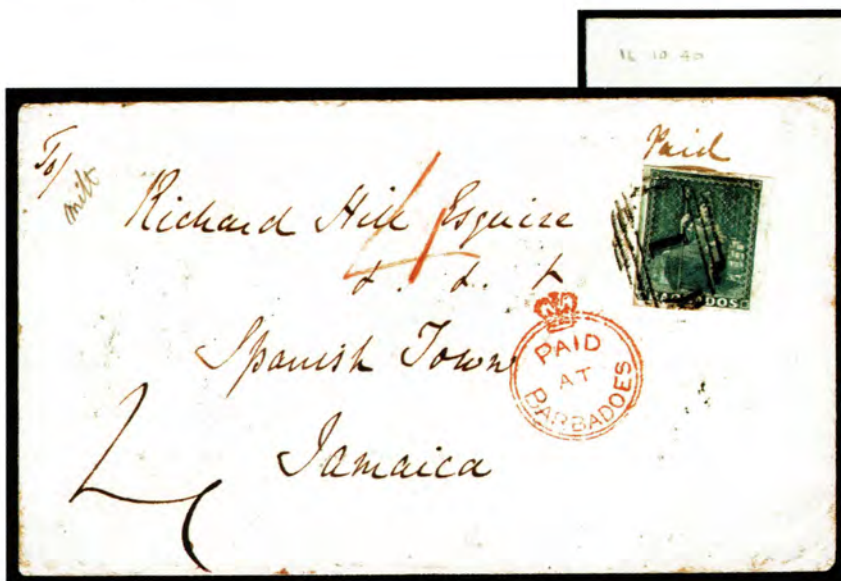 16 10 40
Paid
To/
Richard Hill Esquire
&. &. &
Spanish Town
Jamaica
PAID
AT
BARBADOES
BARBADOS
4
2
1